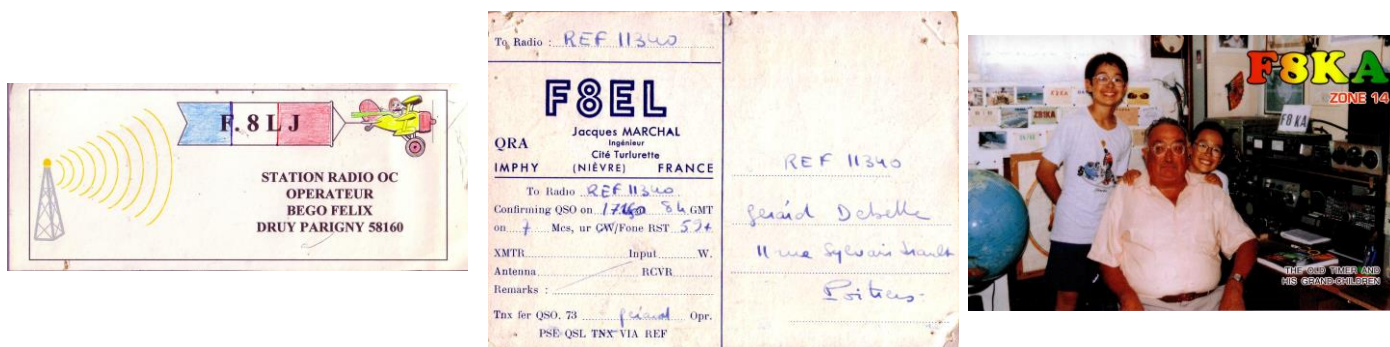 F. 8 L J
STATION RADIO OC
OPERATEUR
BEGO FELIX
DRUY PARIGNY 58160
To Radio : REF 11340
F8EL
Jacques MARCHAL
Ingénieur
Cité Turlurette
QRA
IMPHY (NIÈVRE) FRANCE
To Radio REF 11340
Confirming QSO on 8h GMT
on 7 Mcs, ur CW/Fone RST
XMTR Input W.
Antenna RCVR
Remarks :
Tnx fer QSO. 73 gérard Opr.
PSE QSL TNX VIA REF
REF 11340
Gérard Debelle
11 rue Sylvain
Poitiers.
F8KA
ZONE 14
ZB1KA
F8 KA
THE OLD TIMER AND
HIS GRAND-CHILDREN